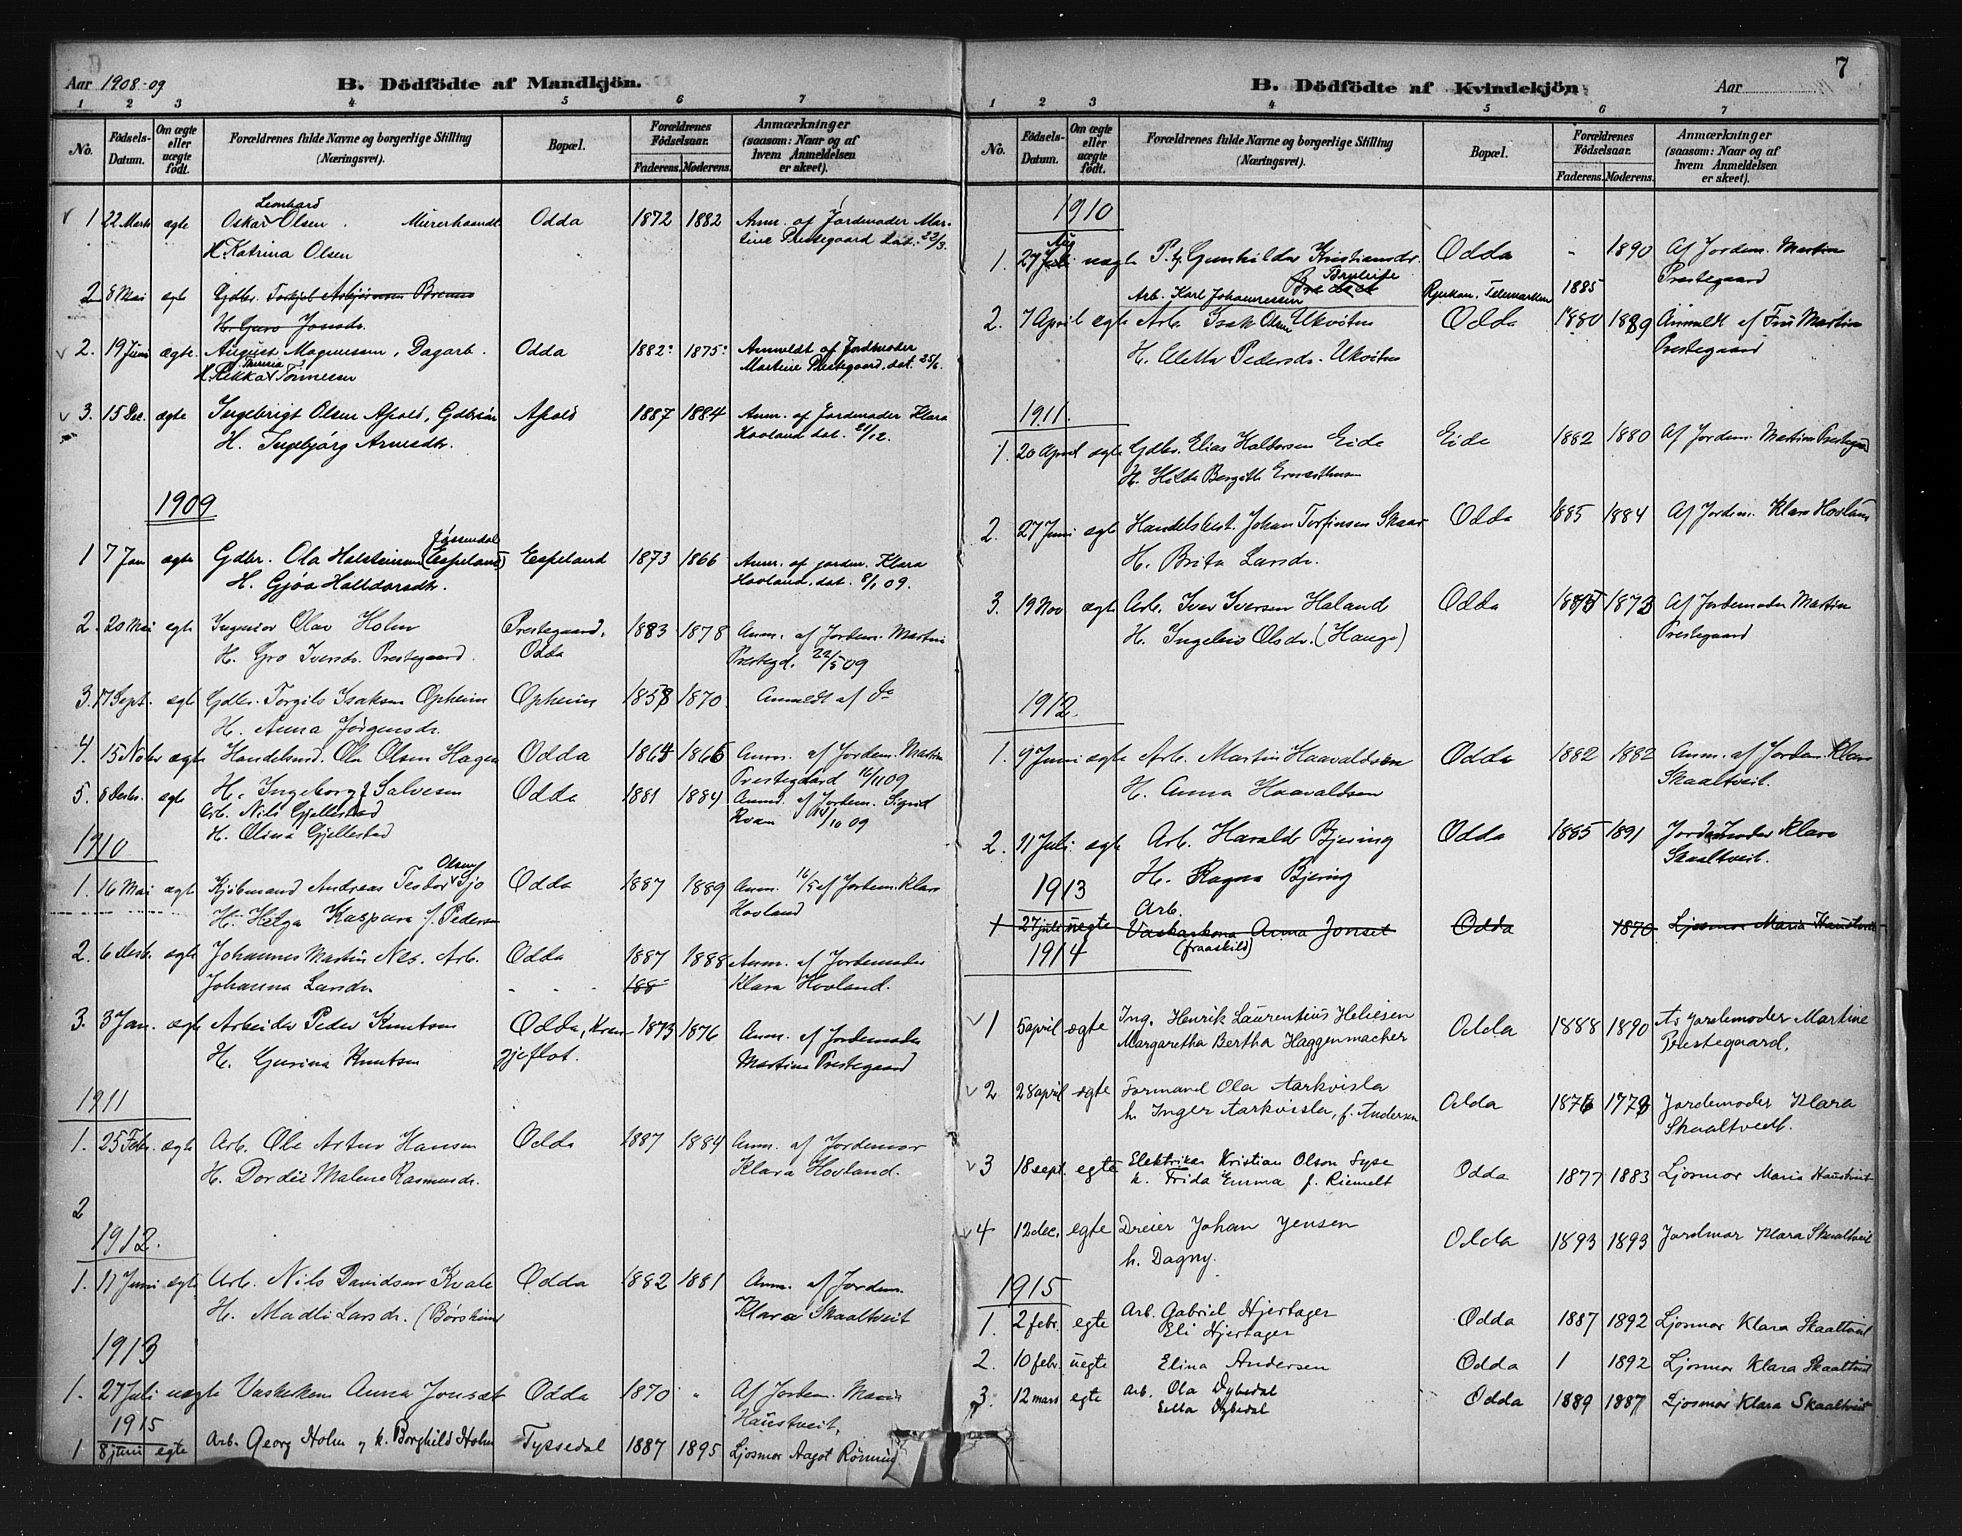 Aar 1908-09
B. Dödfödte af Mandkjön.
1 2 3 4 5 6 7
No.
Födsels-Datum.
Om ægte eller uægte födt.
Forældrenes fulde Navne og borgerlige Stilling (Næringsvei).
Bopæl.
Forældrenes Födselsaar.
Faderens. Moderens.
Anmærkninger (saasom: Naar og af hvem Anmeldelsen er skeet).
Leonhard
1 22 Marts ægte Oskar Olsen . Murerhaandt. Odda 1872 1882 Anm. af Jordemoder Mar-
H. Katrina Olsen tine Prestegaard dat. 22/3.
2 8 Mai egt Gdbr. Torkjel Asbjørnsen
H. Guro Jonsdr.
2. 19 Juni ægte. August Magnussen, Dagarb. Odda 1882 1875 Anmeldt af Jordmoder
H. Rikka Tønnessen Martine Prestegaard, dat. 25/6.
3. 15 Dec. ægte Ingebrigt Olsen Apold, Apold 1887 1884 Anm. af Jordemoder Klara
H. Ingebjörg Arnesdtr. Hovland dat. 21/12.
1909
1 7 Jan ægte Gdbr. Ola Halsteinsen (Espeland) Espeland 1873 1866 Anm. af jordem. Klara
H. Gjøa Halldorsdtr. Hovland, dat. 8/1 09.
2. 20 Mai egt Ingeniør Olav Holm Prestegaard, 1883 1878 Anm. af Jordem. Martin
H. Gro Iversdr. Prestegaard. Odda Prestegd. 22/5 09
3. 17 Sept. egte Gdbr. Torgils Isaksen Opheim Opheim 1858 1870 Anmeldt af do
H. Anna Jörgensdr.
4. 15 Novbr egte Handelsmd. Ole Olsen Hagen Odda 1866 Anm. af Jordem. Martin
H. Ingeborg f. Salvesen Prestegaard 16/11 09
5. 8 Decbr. egt Arb. Nils Gjellestad Odda 1881 1884 Anmd. af Jordem. Sigrid
H. Olina Gjellestad Kvam
1910
1. 16 Mai egt Kjöbmand Andreas Olsen Odda 1887 1889 Anm. 16/5 af Jordem. Klara
H. Helga Kaspara f. Pedersen Hovland
2. 6 Decb. egte Johannes Martin Nes. Arb. Odda 1887 1888 Anm. af Jordemoder
Johanna Larsdr. Klara Hovland.
3. 3 Jan. egte Arbeider Peder Knutsen Odda, 1873 1876 Anm. af Jordemoder
H. Gurina Knutsen Martina Prestegaard
1911
1. 25 Febr. egte Arb. Ole Artur Hansen Odda 1887 1884 Anm. af Jordemor
H. Dordei Malene Rasmusdr. Klara Hovland.
2
1912.
1. 17 Juni egte Arb. Nils Davidsen Kvale Odda 1882 1881 Anm. af Jordem.
H. Madli Larsdr. (Børsheim Klara Skaaltveit
1913
1. 27 Juli uegte Vaskekon Anna Jonset Odda 1870 " Af Jordem. Maria
Haustveit.
1915
1 8 juni egte Arb. Georg Holm og h. Borghild Holm Tyssedal 1887 1895 Ljosmor Aagot Rönning
7
B. Dödfödte af Kvindekjön.
Aar
1 2 3 4 5 6 7
No.
Födsels-Datum.
Om ægte eller uægte födt.
Forældrenes fulde Navne og borgerlige Stilling (Næringsvei).
Bopæl.
Forældrenes Födselsaar.
Faderens. Moderens.
Anmærkninger (saasom: Naar og af hvem Anmeldelsen er skeet).
1910
1. 27 Aug uegte P. Gunhilda Kristiansdr. Odda - 1890 Af Jordem. Martin
Arb. Karl Johannessen Rjukan, Telemarken 1885 Prestegaard
2. 7 April egte Arb. Isak Olsen Odda 1880 1889 Anmeldt af Fru Martin
H. Aletta Pedersdr. Prestegaard
1911.
1. 20 April egte Gdbr. Elias Haldorsen Eide Eide 1882 1880 Af Jordem. Martin Prestegaard
H. Hilda Bergitte
2. 27 Juni egt Handelsbest. Johan Torfinsen Skaar Odda 1885 1884 Af Jordem. Klara Hovland
H. Brita Larsdr.
3. 19 Nov egte Arb. Iver Iversen Haland Odda 1873 Af Jordemoder Martin
H. Ingeleiv Olsdr. (Hauge) Prestegaard
1912.
1. 9 Juni egte Arb. Martin Haavaldsen Odda 1882 1882 Anm. af Jordem. Klara
H. Anna Haavaldsen Skaaltveit.
2. 11 Juli egte Arb. Harald Bjering Odda 1885 1891 Jordemoder Klara
H. Ragna Bjering Skaaltveit.
1913
Arb.
1 27 juli uegte Vaskarkona Anna Jonset Odda 1870 Ljosmor Maria Haustveit
(fraaskild)
1914
1 5 april ægte Ing. Henrik Laurentius Heliesen Odda 1888 1890 Av Jordemoder Martine
Margaretha Bertha Haggenmacher Prestegaard.
2 28 april ægte Formand Ola Aarkvisla Odda 1876 1773 Jordemoder Klara
h. Inger Aarkvisla, f. Andersen Skaaltvedt.
3 18 sept. egte Elektriker Kristian Olson Syse Odda 1877 1883 Ljosmor Maria Haustveit
h. Frida Emma f. Riemelt
4 12 dec. egte Dreier Johan Jensen Odda 1893 1893 Jordmor Klara Skaaltveit
h. Dagny.
1915
1. 2 febr. egte Arb. Gabriel Hjertager Odda 1887 1892 Ljosmor Klara Skaaltveit
Eli Hjertager
2. 10 febr. uegte Elina Andersen Odda 1 1892 Ljosmor Klara Skaaltveit
3. 12 mars egte Arb. Ola Dybedal Odda 1889 1887 Ljosmor Klara Skaaltveit
Dybedal